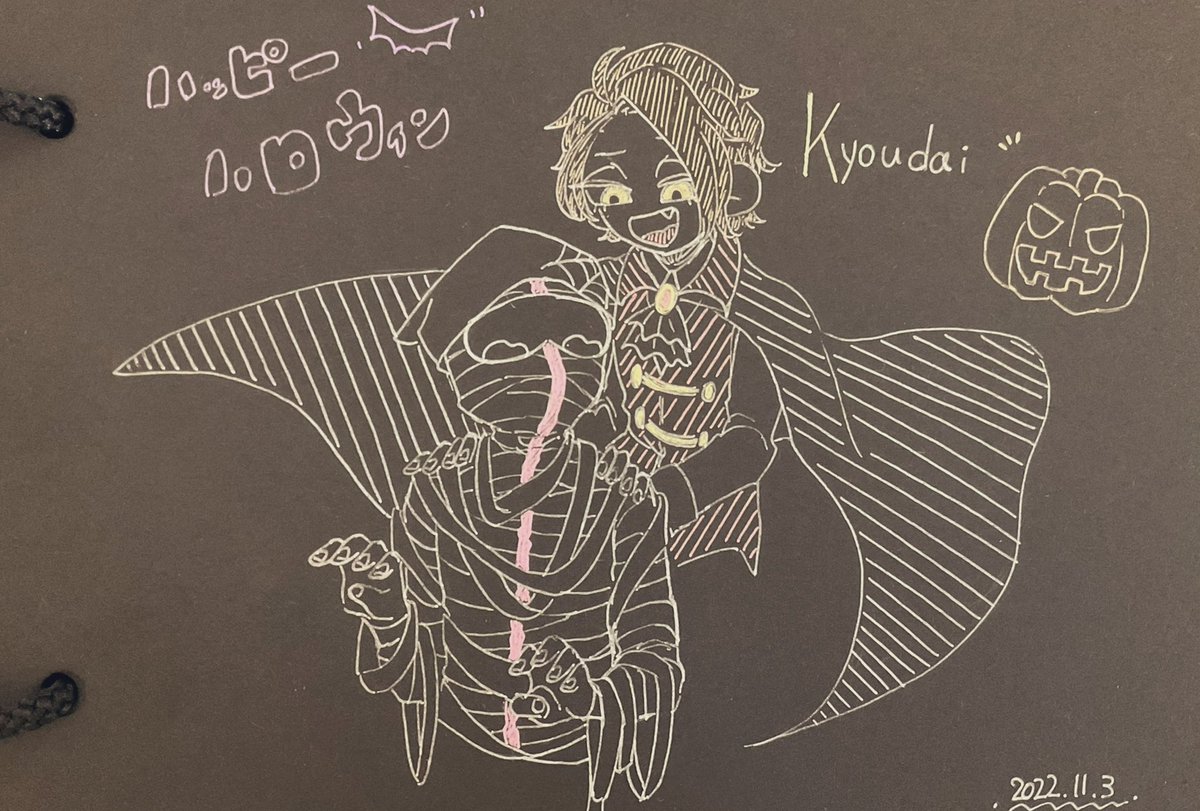 ハッピー
ハロウィン
Kyoudai
2022.11.3